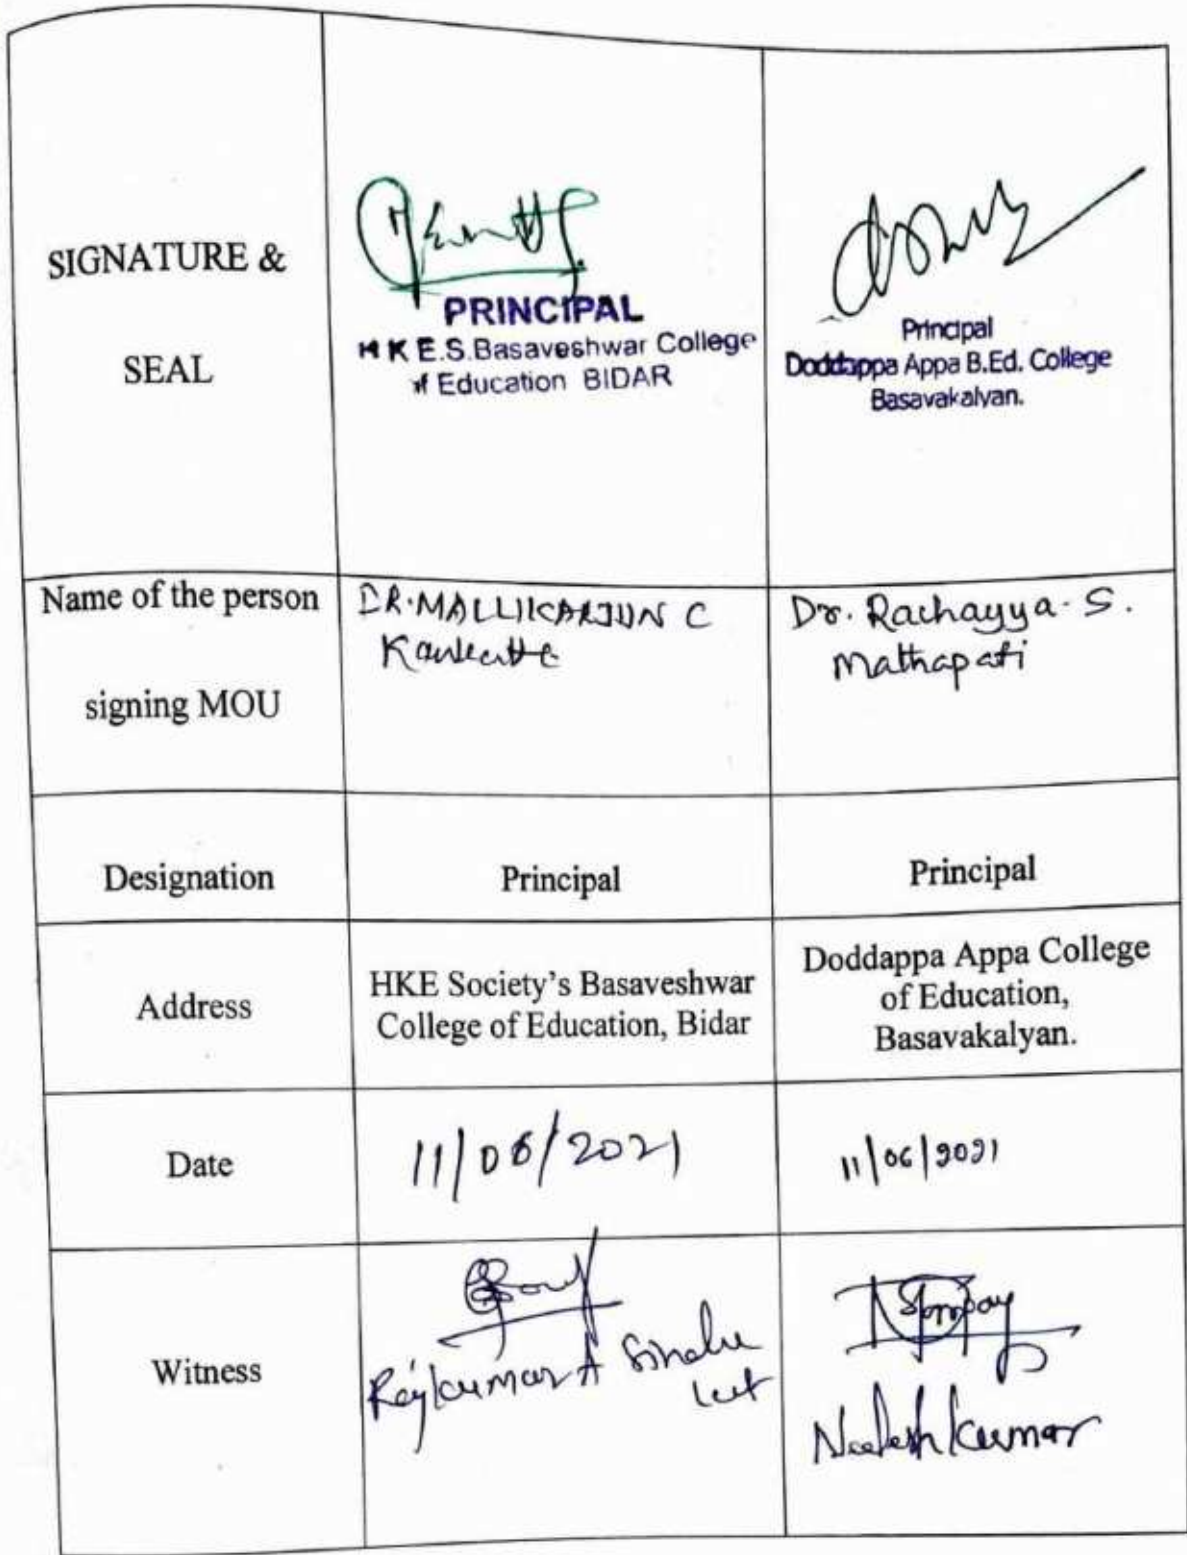 SIGNATURE &
SEAL
PRINCIPAL
H K E.S.Basaveshwar College
of Education BIDAR
Principal
Doddappa Appa B.Ed. College
Basavakalyan.
Name of the person
signing MOU
DR. MALLIKARJUN C
Dr. Rachayya. S.
Mathapati
Designation
Principal
Principal
Address
HKE Society's Basaveshwar
College of Education, Bidar
Doddappa Appa College
of Education,
Basavakalyan.
Date
11/06/2021
11/06/2021
Witness
Rajkumar A
Neelesh Kumar